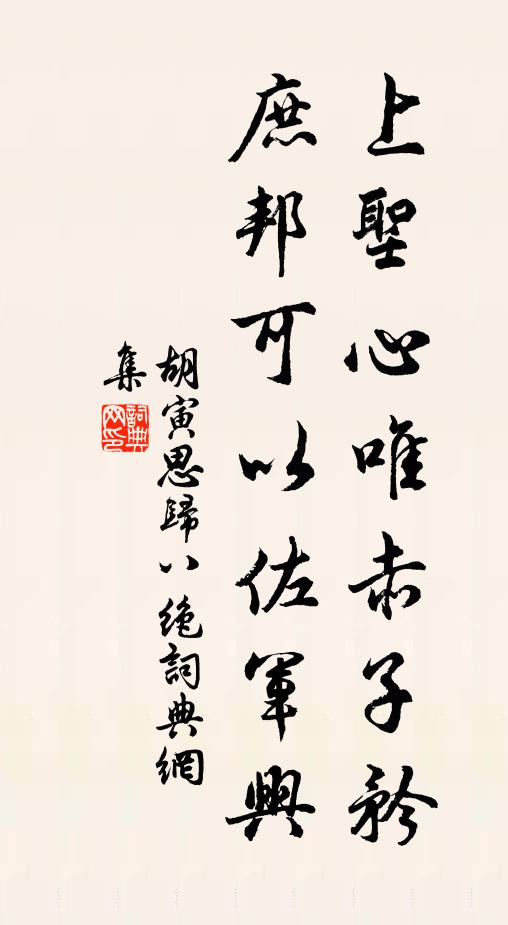 上聖心唯赤子矜
庶邦可以佐軍興
胡寅思歸八絶詞典網
集
詞典网印